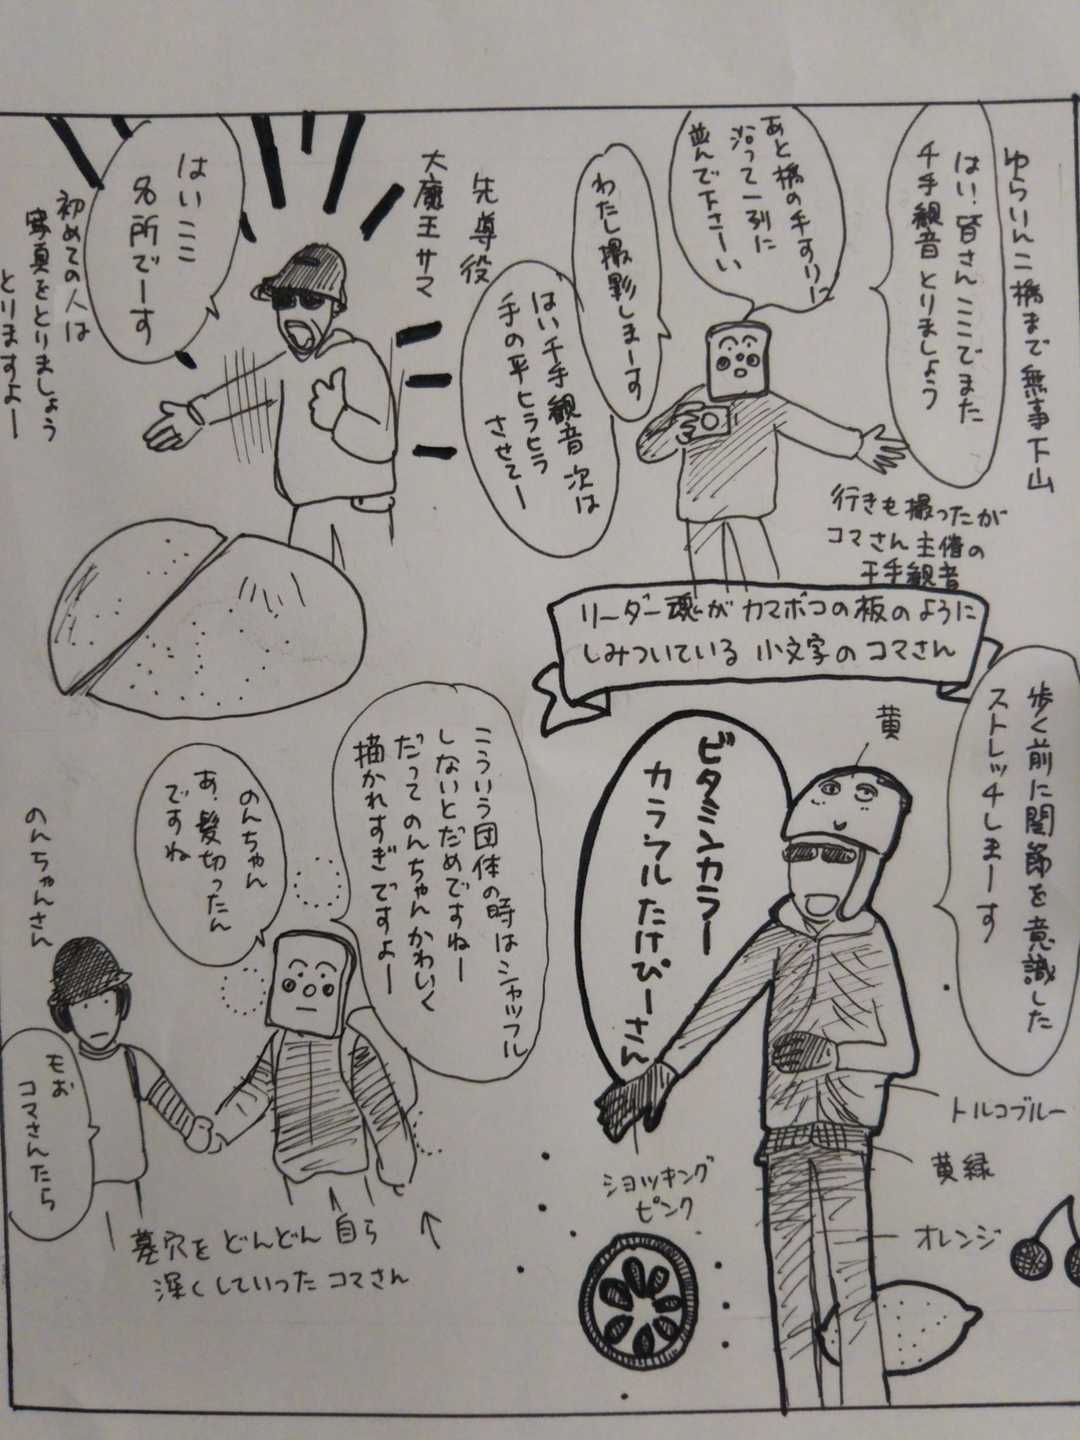 ゆらりんこ橋まで無事下山
はい！皆さんここでまた
千手観音とりましょう
あと橋の手すりに
沿って一列に
並んで下さーい
わたし撮影しまーす
はい千手観音次は
手の平ヒラヒラ
させてー
行きも撮ったが
コマさん主催の
千手観音
リーダー魂がカマボコの板のように
しみついている小文字のコマさん
先導役
大魔王サマ
はいここ
名所でーす
初めての人は
写真をとりましょう
とりますよー
歩く前に関節を意識した
ストレッチしまーす
黄
ビタミンカラー
カラフルたけぴーさん
トルコブルー
黄緑
オレンジ
ショッキング
ピンク
こういう団体の時はシャッフル
しないとだめですねー
だってのんちゃんかわいく
描かれすぎですよー
のんちゃん
あ、髪切ったん
ですね
のんちゃんさん
モお
コマさんたら
墓穴をどんどん自ら
深くしていったコマさん